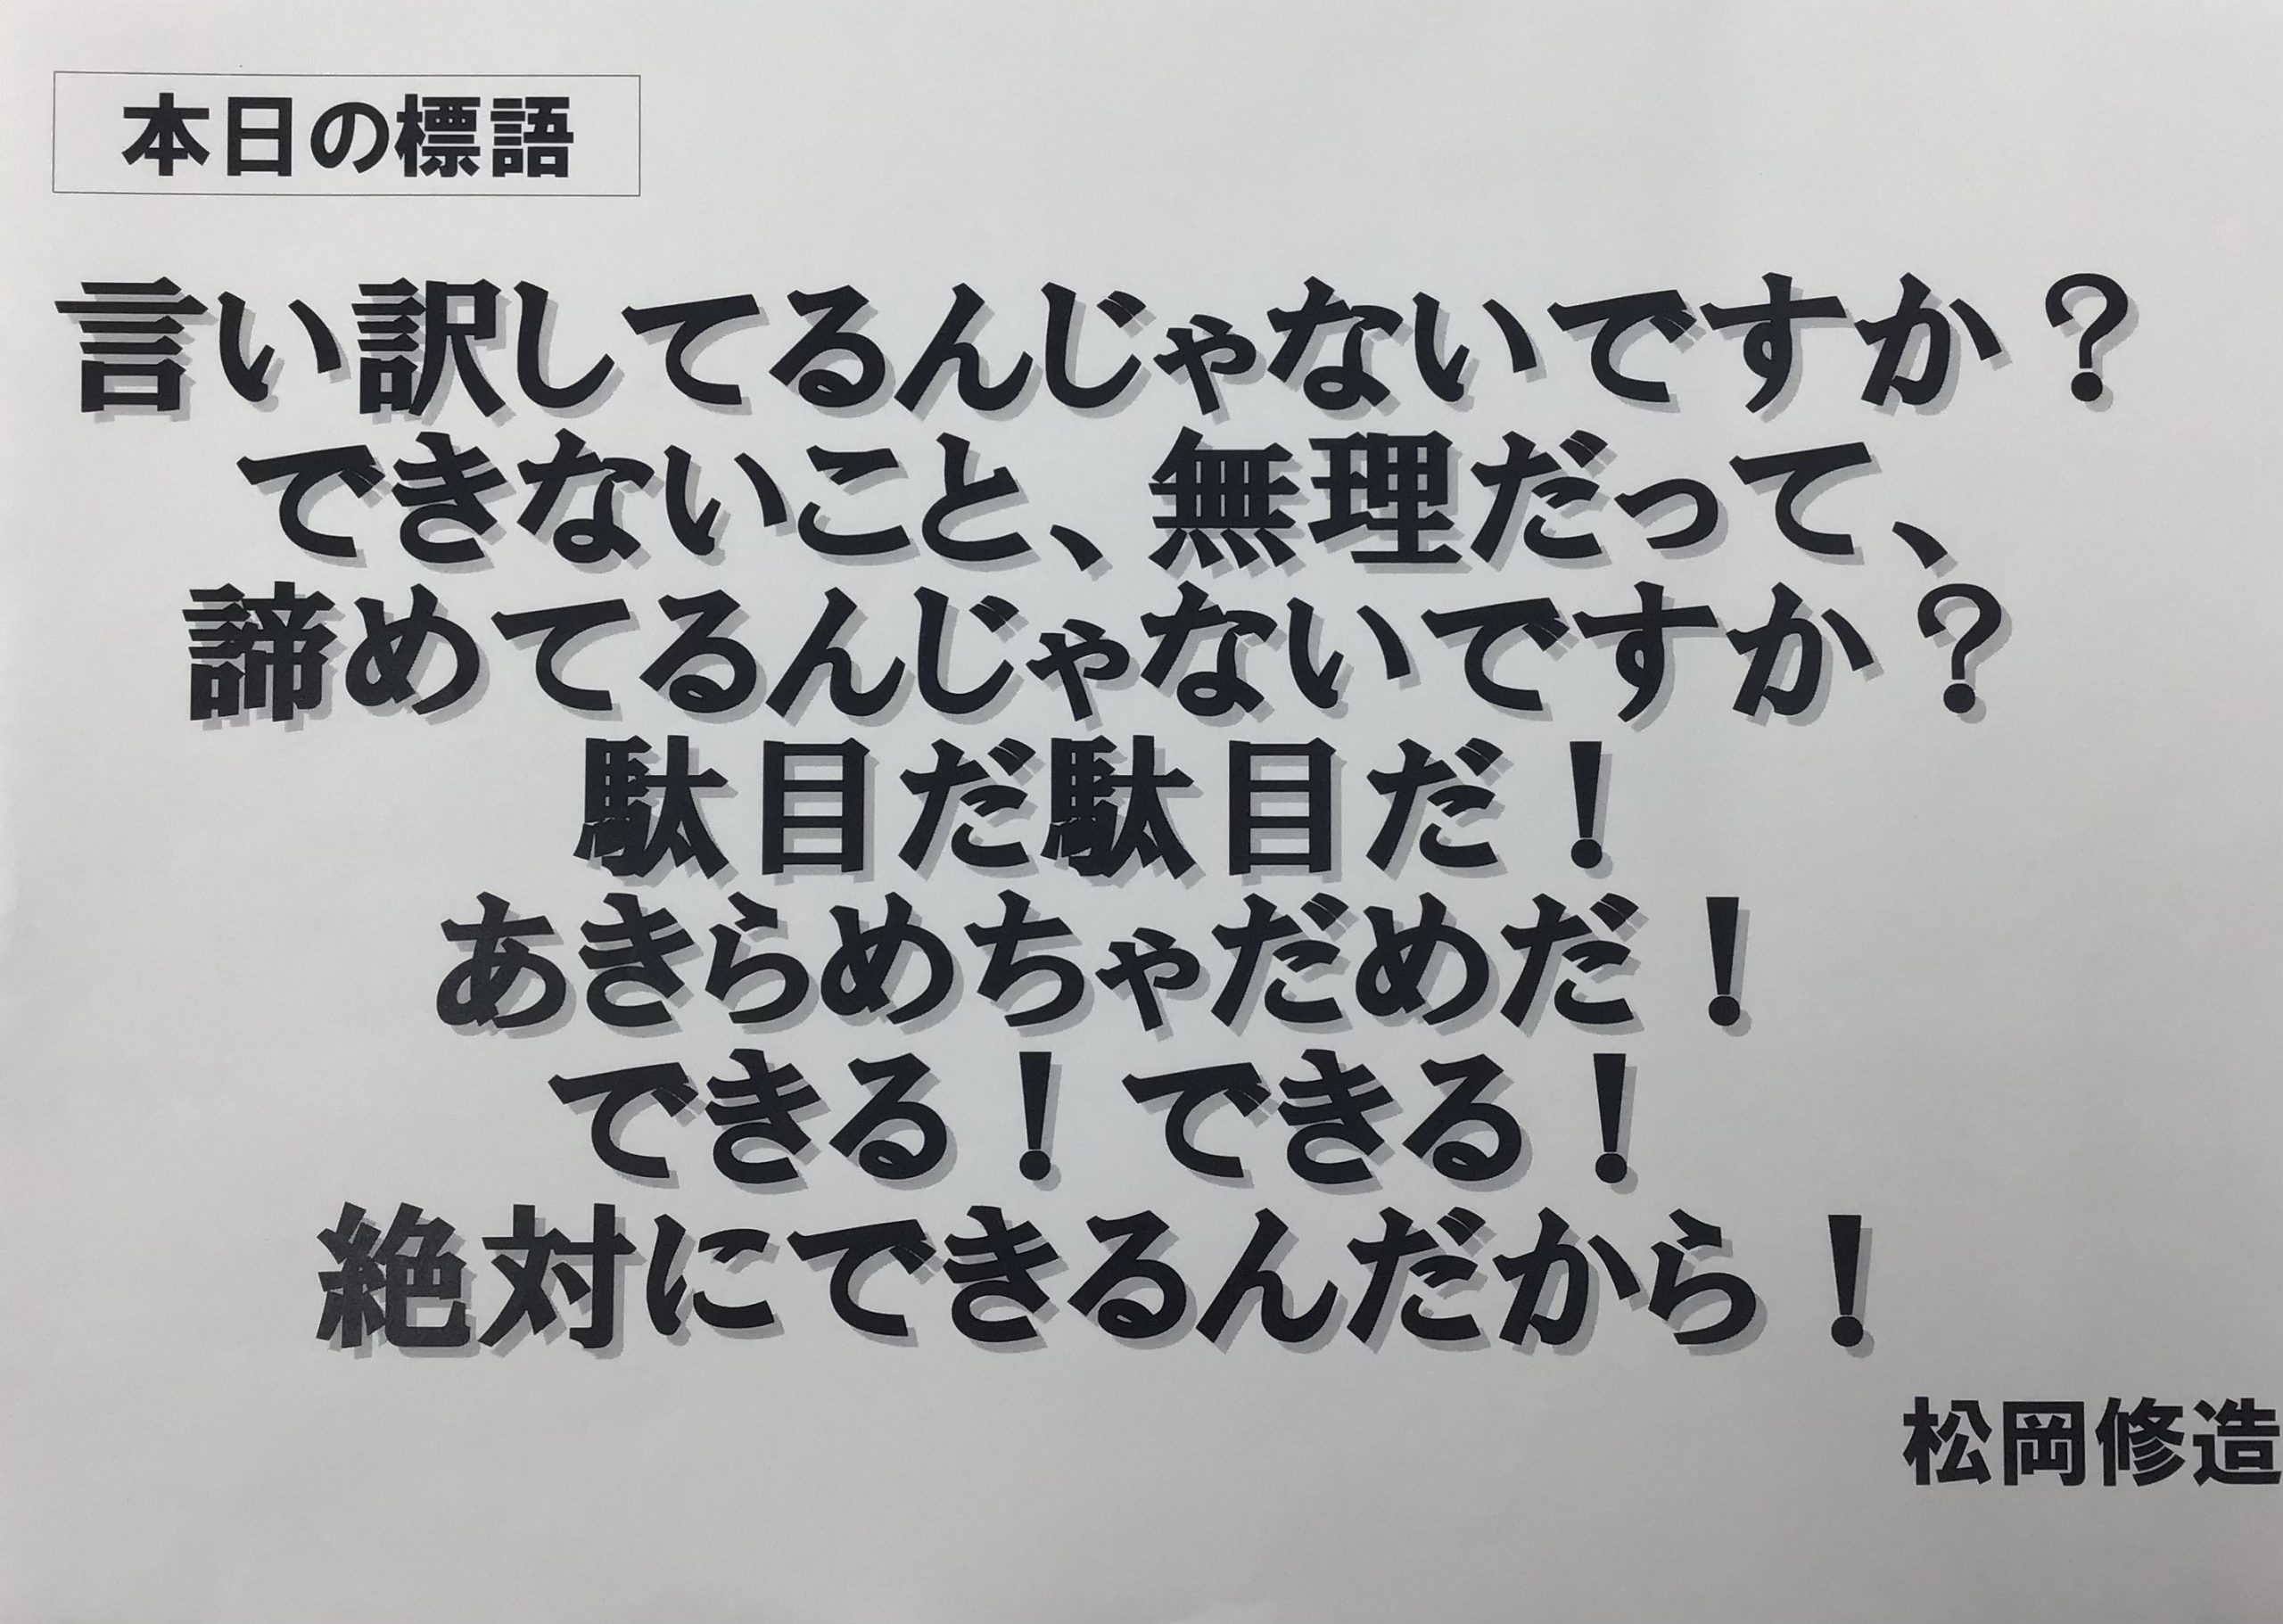 本日の標語
言い訳してるんじゃないですか？
できないこと、無理だって、
諦めてるんじゃないですか？
駄目だ駄目だ！
あきらめちゃだめだ！
できる！できる！
絶対にできるんだから！
松岡修造